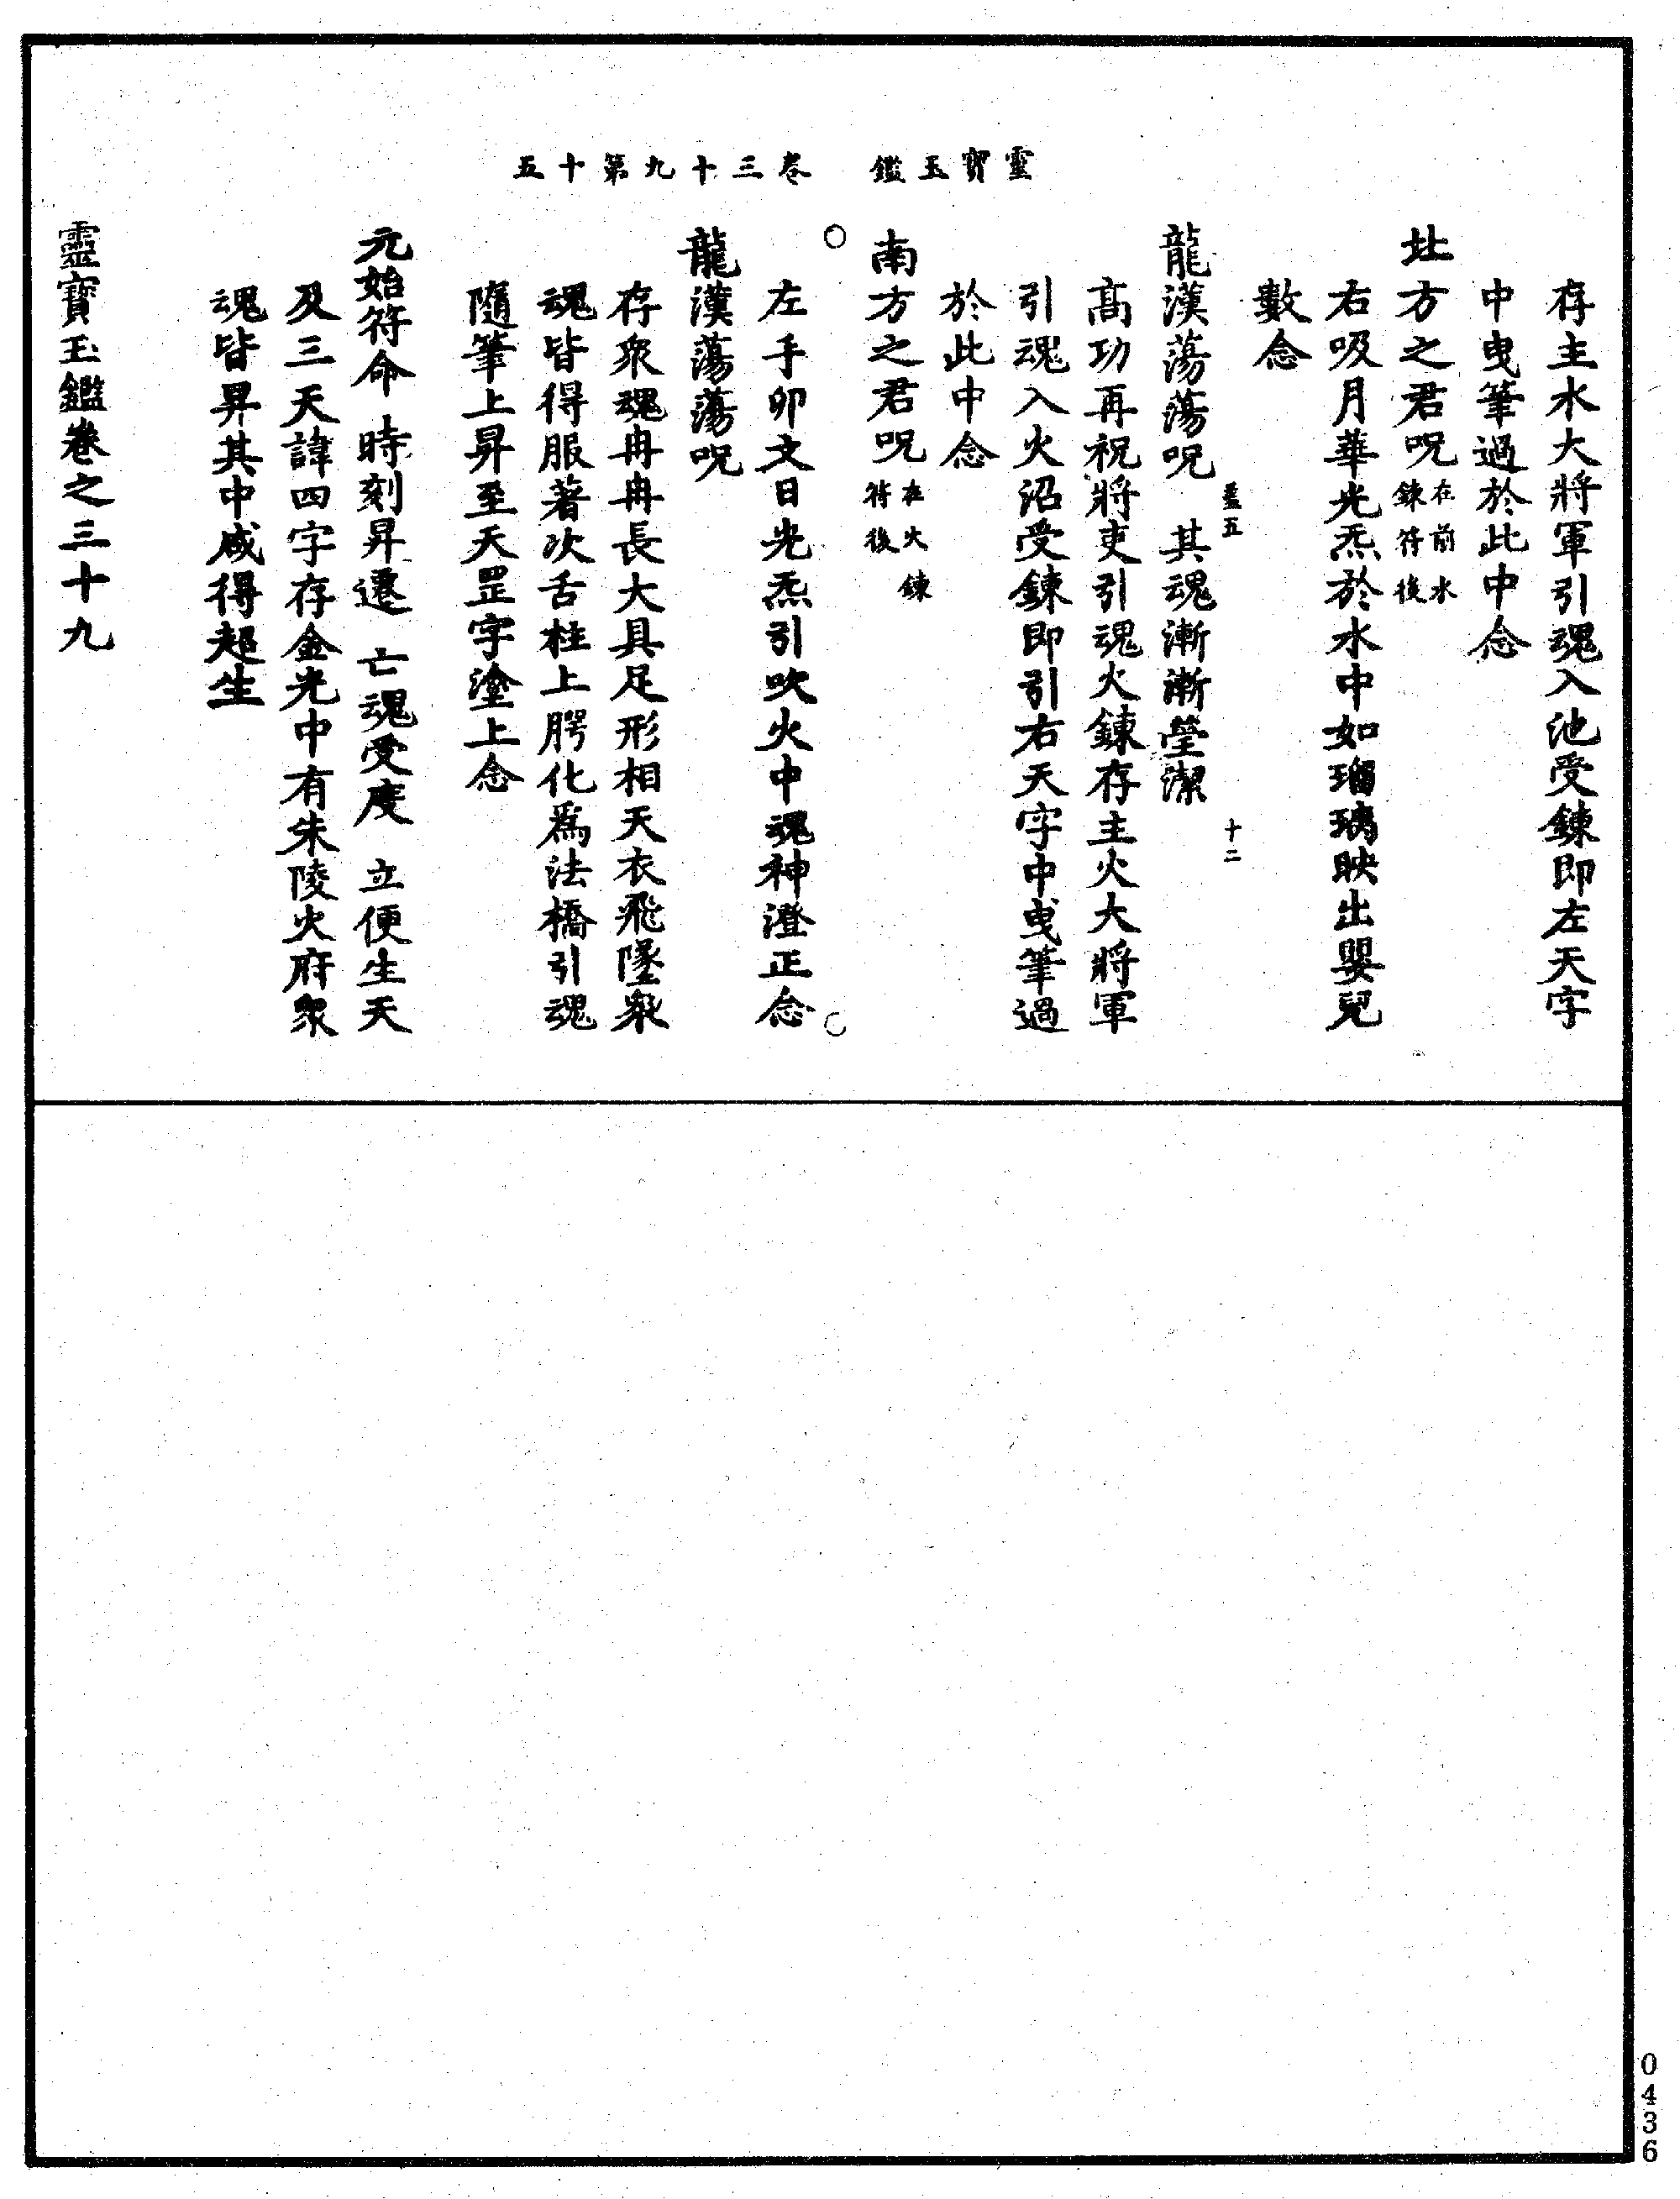 靈寶玉鑑　卷三十九第十五
存主水大將軍引魂入池受鍊即左天字
中曳筆過於此中念
北方之君呪在前水鍊符後
右吸月華光炁於水中如瑠璃映出嬰兒
數念
龍漢蕩蕩呪　其魂漸漸瑩潔
高功再祝將吏引魂火鍊存主火大將軍
引魂入火沼受鍊即引右天字中曳筆過
於此中念
南方之君呪在火鍊符後
左手卯文日光炁引吹火中魂神澄正念
龍漢蕩蕩呪
存衆魂冉冉長大具足形相天衣飛墜衆
魂皆得服著次舌柱上腭化爲法橋引魂
隨筆上昇至天罡字塗上念
元始符命　時刻昇遷　亡魂受度　立便生天
及三天諱四字存金光中有朱陵火府衆
魂皆昇其中咸得超生
靈寶玉鑑卷之三十九
十二
0436